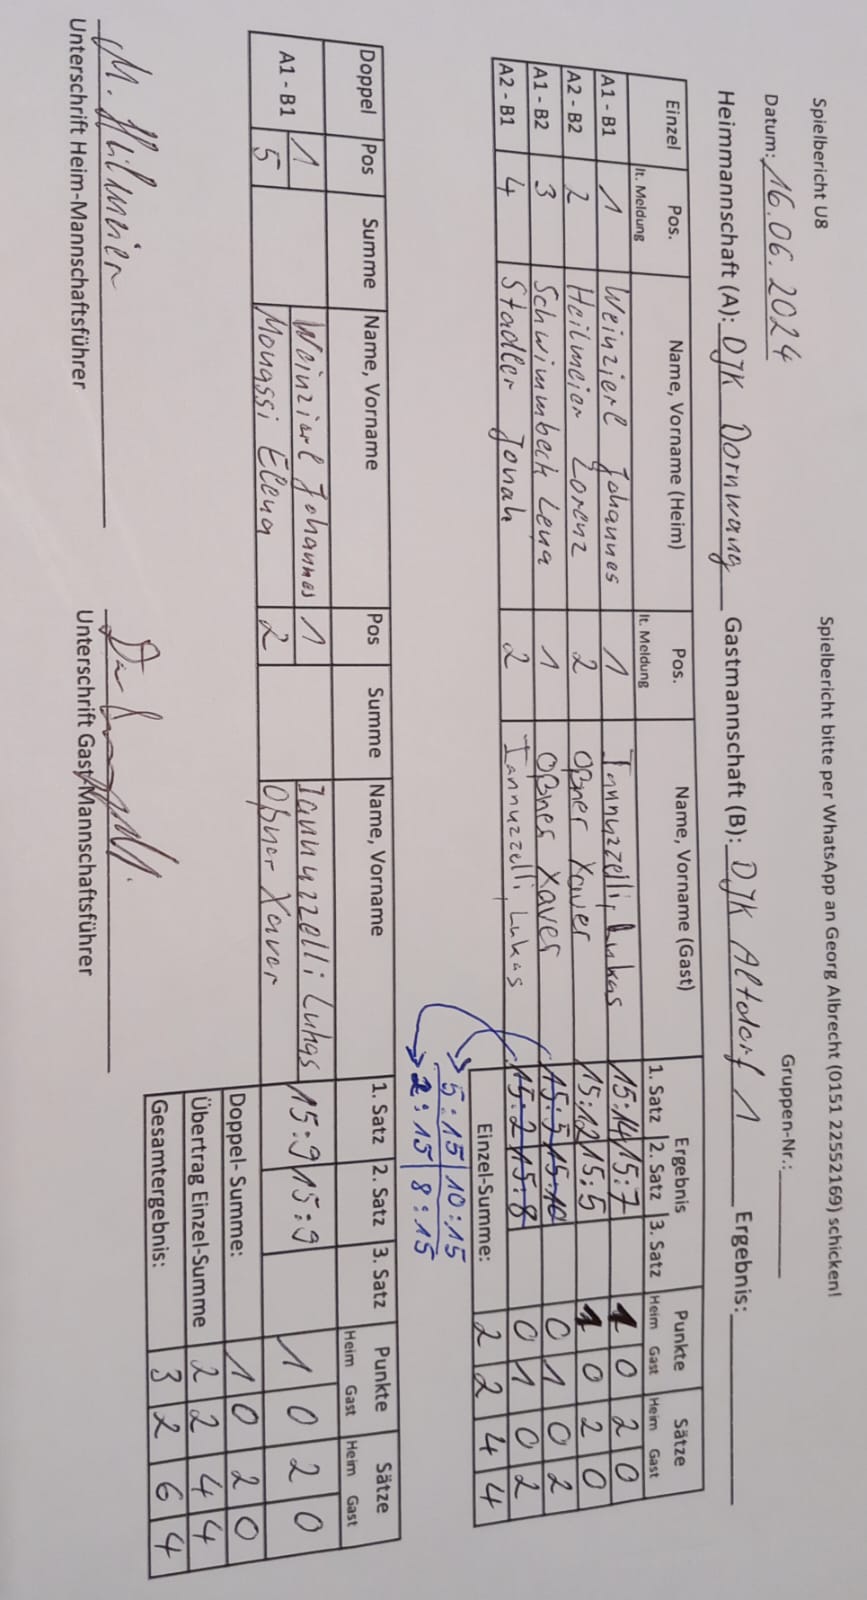 Spielbericht U8
Spielbericht bitte per WhatsApp an Georg Albrecht (0151 22552169) schicken!
Datum: 16.06.2024
Gruppen-Nr.:
Heimmannschaft (A): DJK Dornwang Gastmannschaft (B): DJK Altdorf 1 Ergebnis:
Einzel Pos. lt. Meldung Name, Vorname (Heim) Pos. lt. Meldung Name, Vorname (Gast) Ergebnis 1. Satz 2. Satz 3. Satz Punkte Heim Gast Sätze Heim Gast
A1 - B1 1 Weinzierl Johannes 1 Iannuzzelli, Lukas 15:14 15:7 1 0 2 0
A2 - B2 2 Heilmeier Lorenz 2 Oßner Xaver 15:12 15:5 1 0 2 0
A1 - B2 3 Schwimmbeck Lena 1 Oßner Xaver 15:5 15:10 0 1 0 2
A2 - B1 4 Stadler Jonah 2 Iannuzzelli, Lukas 15:2 15:8 0 1 0 2
Einzel-Summe: 2 2 4 4
5:15 10:15
2:15 8:15
Doppel Pos Summe Name, Vorname Pos Summe Name, Vorname 1. Satz 2. Satz 3. Satz Punkte Heim Gast Sätze Heim Gast
A1 - B1 1 Weinzierl Johannes 1 Iannuzzelli Lukas 15:9 15:9 1 0 2 0
5 Monassi Elena 2 Oßner Xaver
Doppel- Summe: 1 0 2 0
Übertrag Einzel-Summe 2 2 4 4
Gesamtergebnis: 3 2 6 4
M. Heilmeier
Unterschrift Heim-Mannschaftsführer Unterschrift Gast-Mannschaftsführer